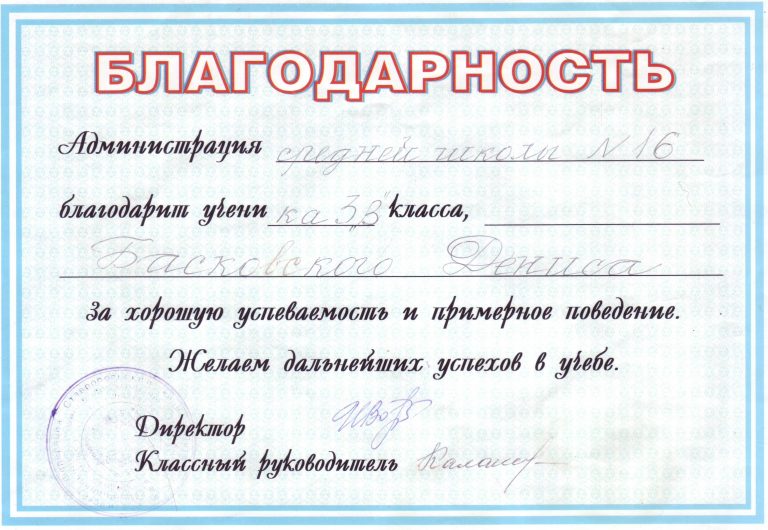 БЛАГОДАРНОСТЬ
Администрация средней школы N 16
благодарит ученика 3 „В" класса,
Басковского Дениса
за хорошую успеваемость и примерное поведение.
Желаем дальнейших успехов в учебе.
Директор
Классный руководитель